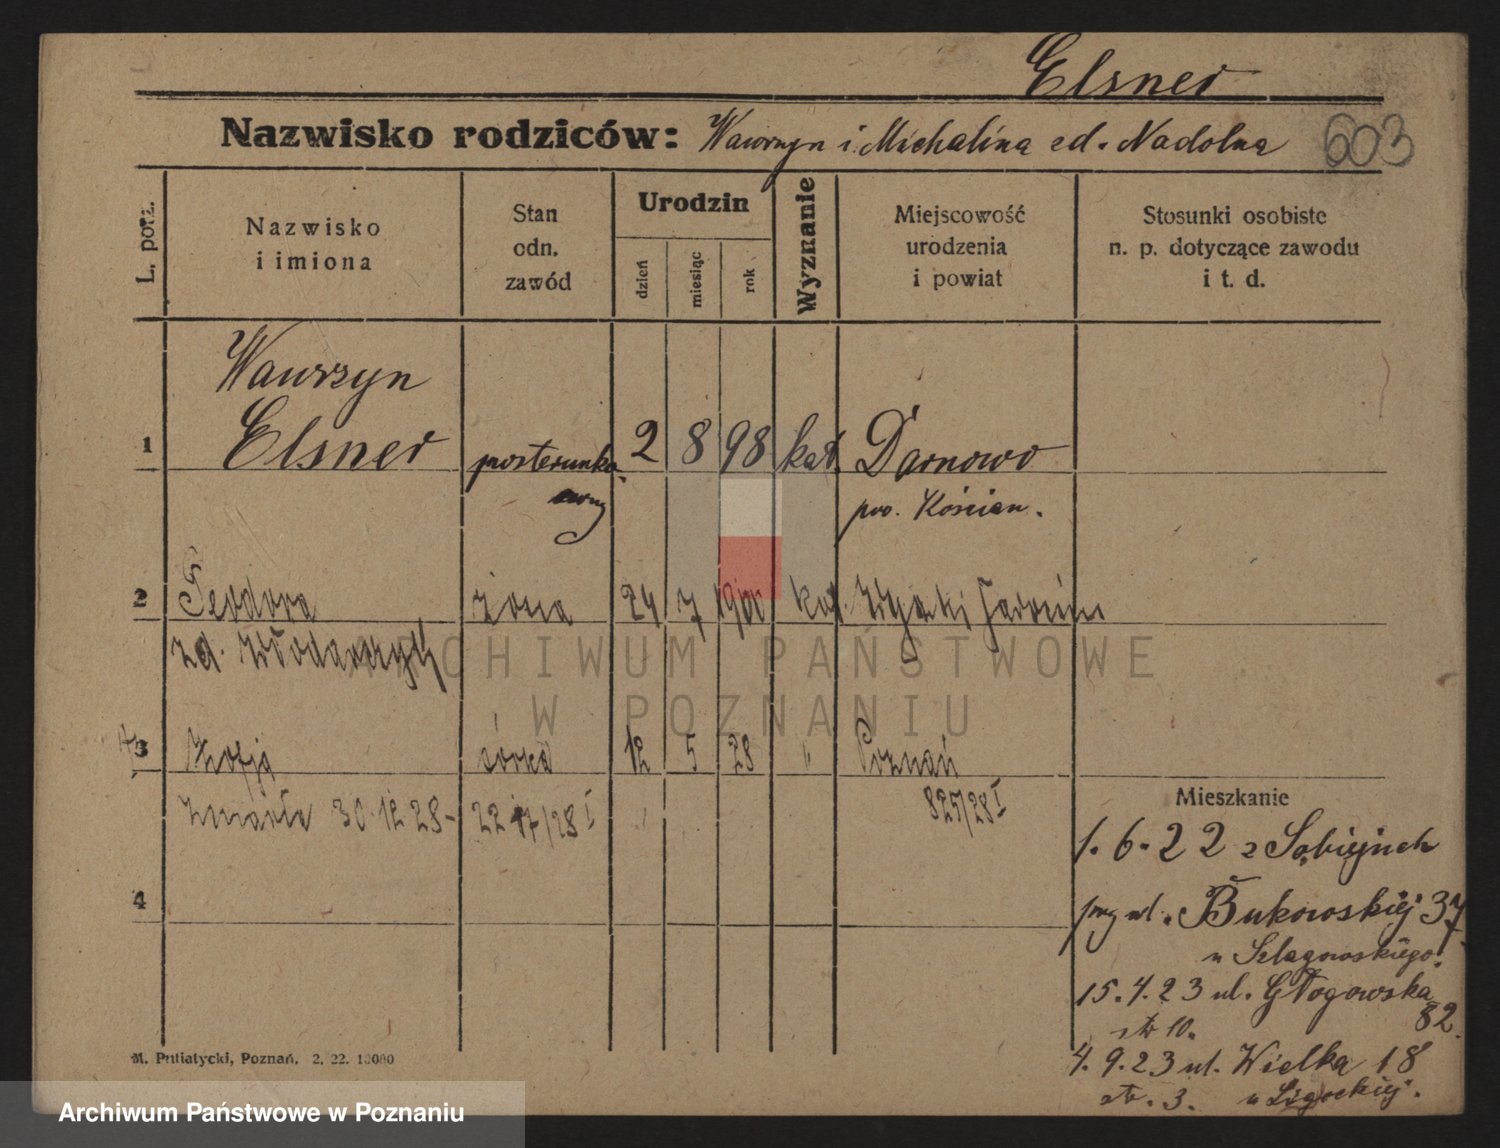 Elsner
Nazwisko rodziców: Wawrzyn i Michalina zd. Nadolna 603
L. porz.
Nazwisko
i imiona
Stan
odn.
zawód
Urodzin
dzień
miesiąc
rok
Wyznanie
Miejscowość
urodzenia
i powiat
Stosunki osobiste
n. p. dotyczące zawodu
i t. d.
Wawrzyn
1 Elsner posterunko- 2 8 98 kat. Darnowo
wy pow. Kościan.
2 Teodora żona 24 7 kat.
zd.
3 Zofja córka 12 5 28 " Poznań
zmarła 30.12 28 - 825/28 I
Mieszkanie
1. 6. 22 z
4
przy ul. Bukowskiej 37
u Szlagowskiego.
15. 4. 23 ul. Głogowska
82.
str 10.
4. 9. 23 ul. Wielka 18
str. 3. u
M. Putiatycki, Poznań. 2. 22. 10000
ARCHIWUM PAŃSTWOWE
W POZNANIU
Archiwum Państwowe w Poznaniu